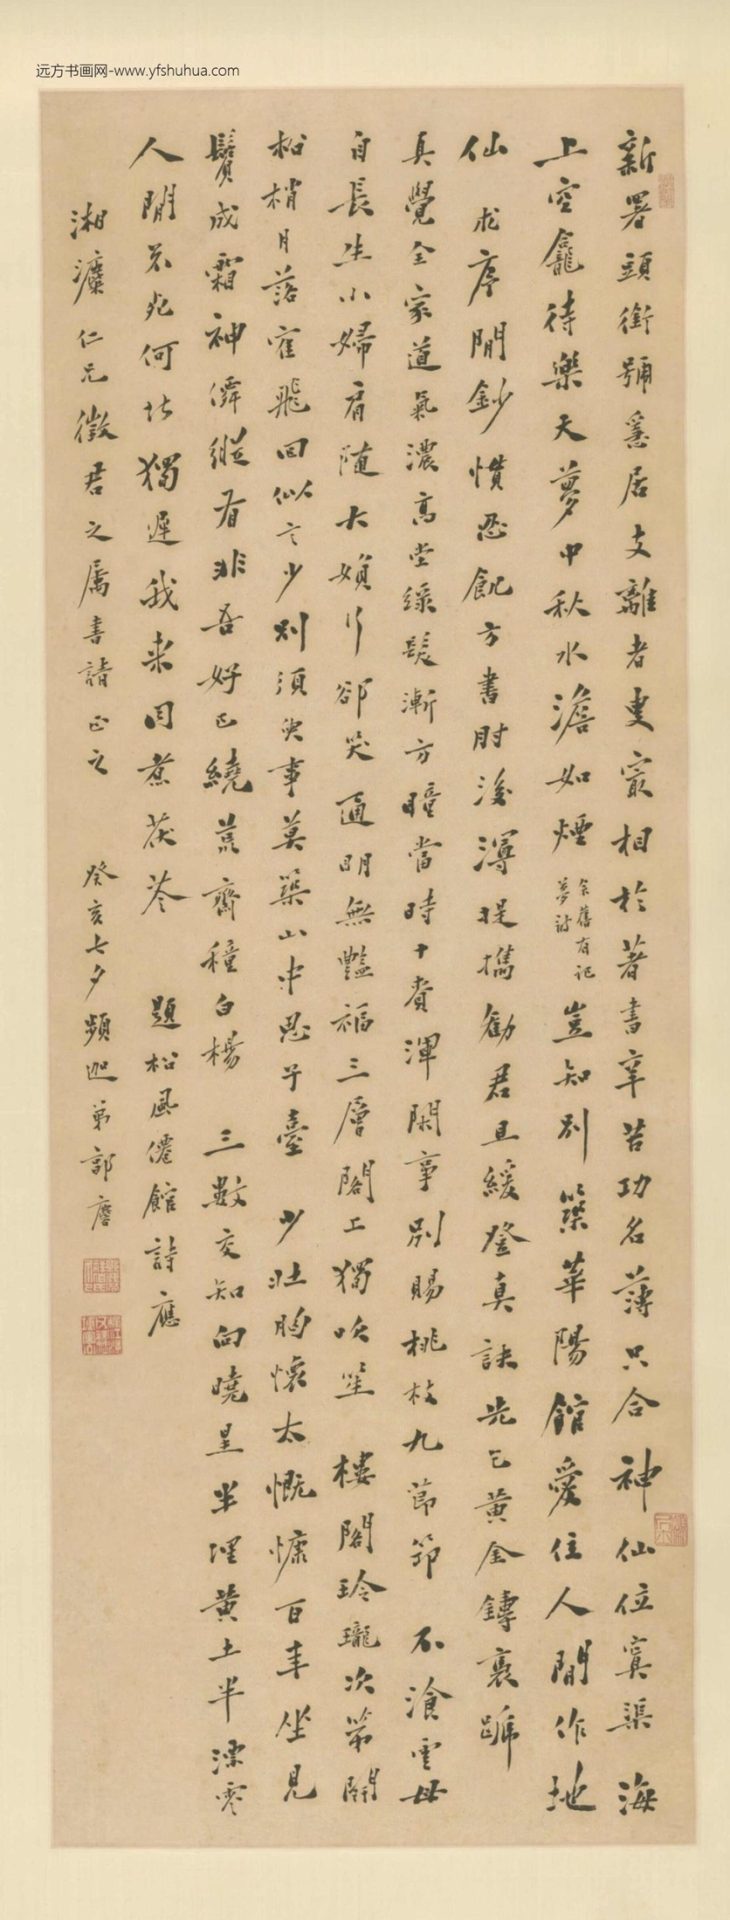 远方书画网-www.yfshuhua.com
新署頭銜號隱居支離者叟最相於著書辛苦功名薄只合神仙位寘渠海
上空龕待樂天夢中秋水澹如煙余舊有記夢詩豈知別築華陽館愛住人間作地
仙求序閒鈔慣忍飢方書肘後溥提攜勸君且緩登真訣先乞黃金鑄裹蹏
真覺全家道氣濃高堂綠髮漸方瞳當時十賚渾閑事別賜桃枝九節筇不飡雲母
自長生小婦肩隨大婦行卻笑通明無豔福三層閣上獨吹笙樓閣玲瓏次第開
松梢月落隺飛回似言少別須臾事莫築山中思子臺少壯胸懷太慨慷百年坐見
鬢成霜神僊縱有非吾好已繞荒齋種白楊三數交知向曉星半埋黃土半漂零
人間不死何堪獨遲我來同煮茯苓題松風僊館詩應
湘湄仁兄徵君之屬書請正之癸亥七夕頻迦弟郭麐